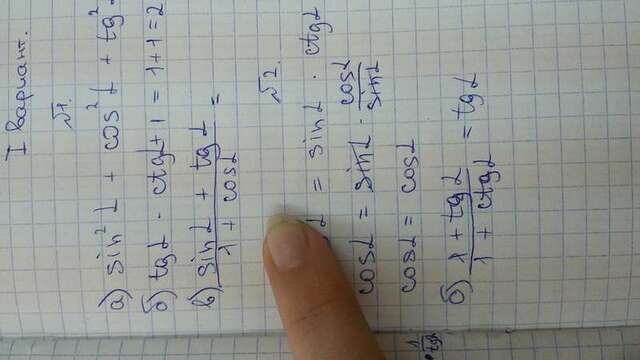 I вариант.
№1.
а) sin² α + cos² α + tg²
б) tg α · ctg α + 1 = 1 + 1 = 2
в) (sin α + tg α) / (1 + cos α) =
№2.
α = sin α · ctg α
cos α = sin α · cos α / sin α
cos α = cos α
1 / tg α
б) (1 + tg α) / (1 + ctg α) = tg α